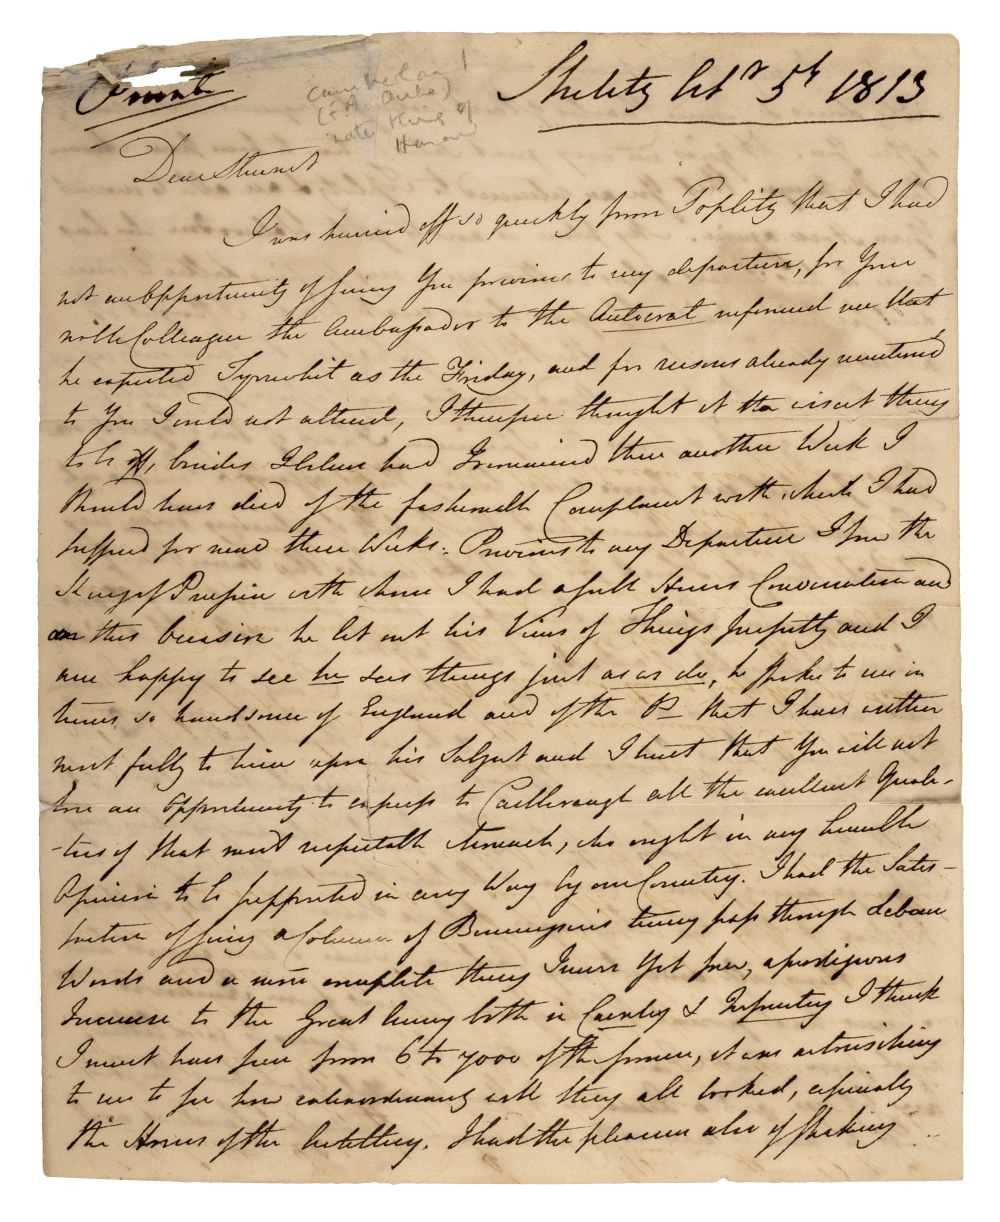 Private
Cumberland
(E. Au. Duke)
later King of
Hanover
Strelitz Octr 5th 1813
Dear Stewart
I was hurried off so quickly from Toplitz that I had
not an Opportunity of seeing You previous to my departure, for Your
noble Colleague the Ambassador to the Autocrat informed me that
he expected Tyrwhit as the Friday, and for reasons already mentioned
to You I could not attend, I therefore thought it the wisest thing
to be off, besides I believe had I remained there another Week I
should have died of the fashionable Complaint with which I had
suffered for near three Weeks. Previous to my Departure I saw the
King of Prussia with whom I had a full Hours Conversation and
on this Occasion he let out his Views of Things perfectly and I
am happy to see he sees things just as we do, he spoke to me in
terms so handsome of England and of the P— that I have written
most fully to him upon this Subject and I trust that You will not
lose an Opportunity to express to Castlereagh all the excellent Quali-
-ties of that most respectable Monarch, who ought in my humble
Opinion to be supported in every Way by our Country. I had the Satis-
faction of seeing a Column of Benningsens Army pass through
Words and a more complete thing I never Yet saw, a prodigious
Increase to the Great Army both in Cavalry & Infantry I think
I must have seen from 6 to 7000 of the former, it was astonishing
to me to see how extraordinary well they all looked, especially
the Horses of the Artillery. I had the pleasure also of shaking